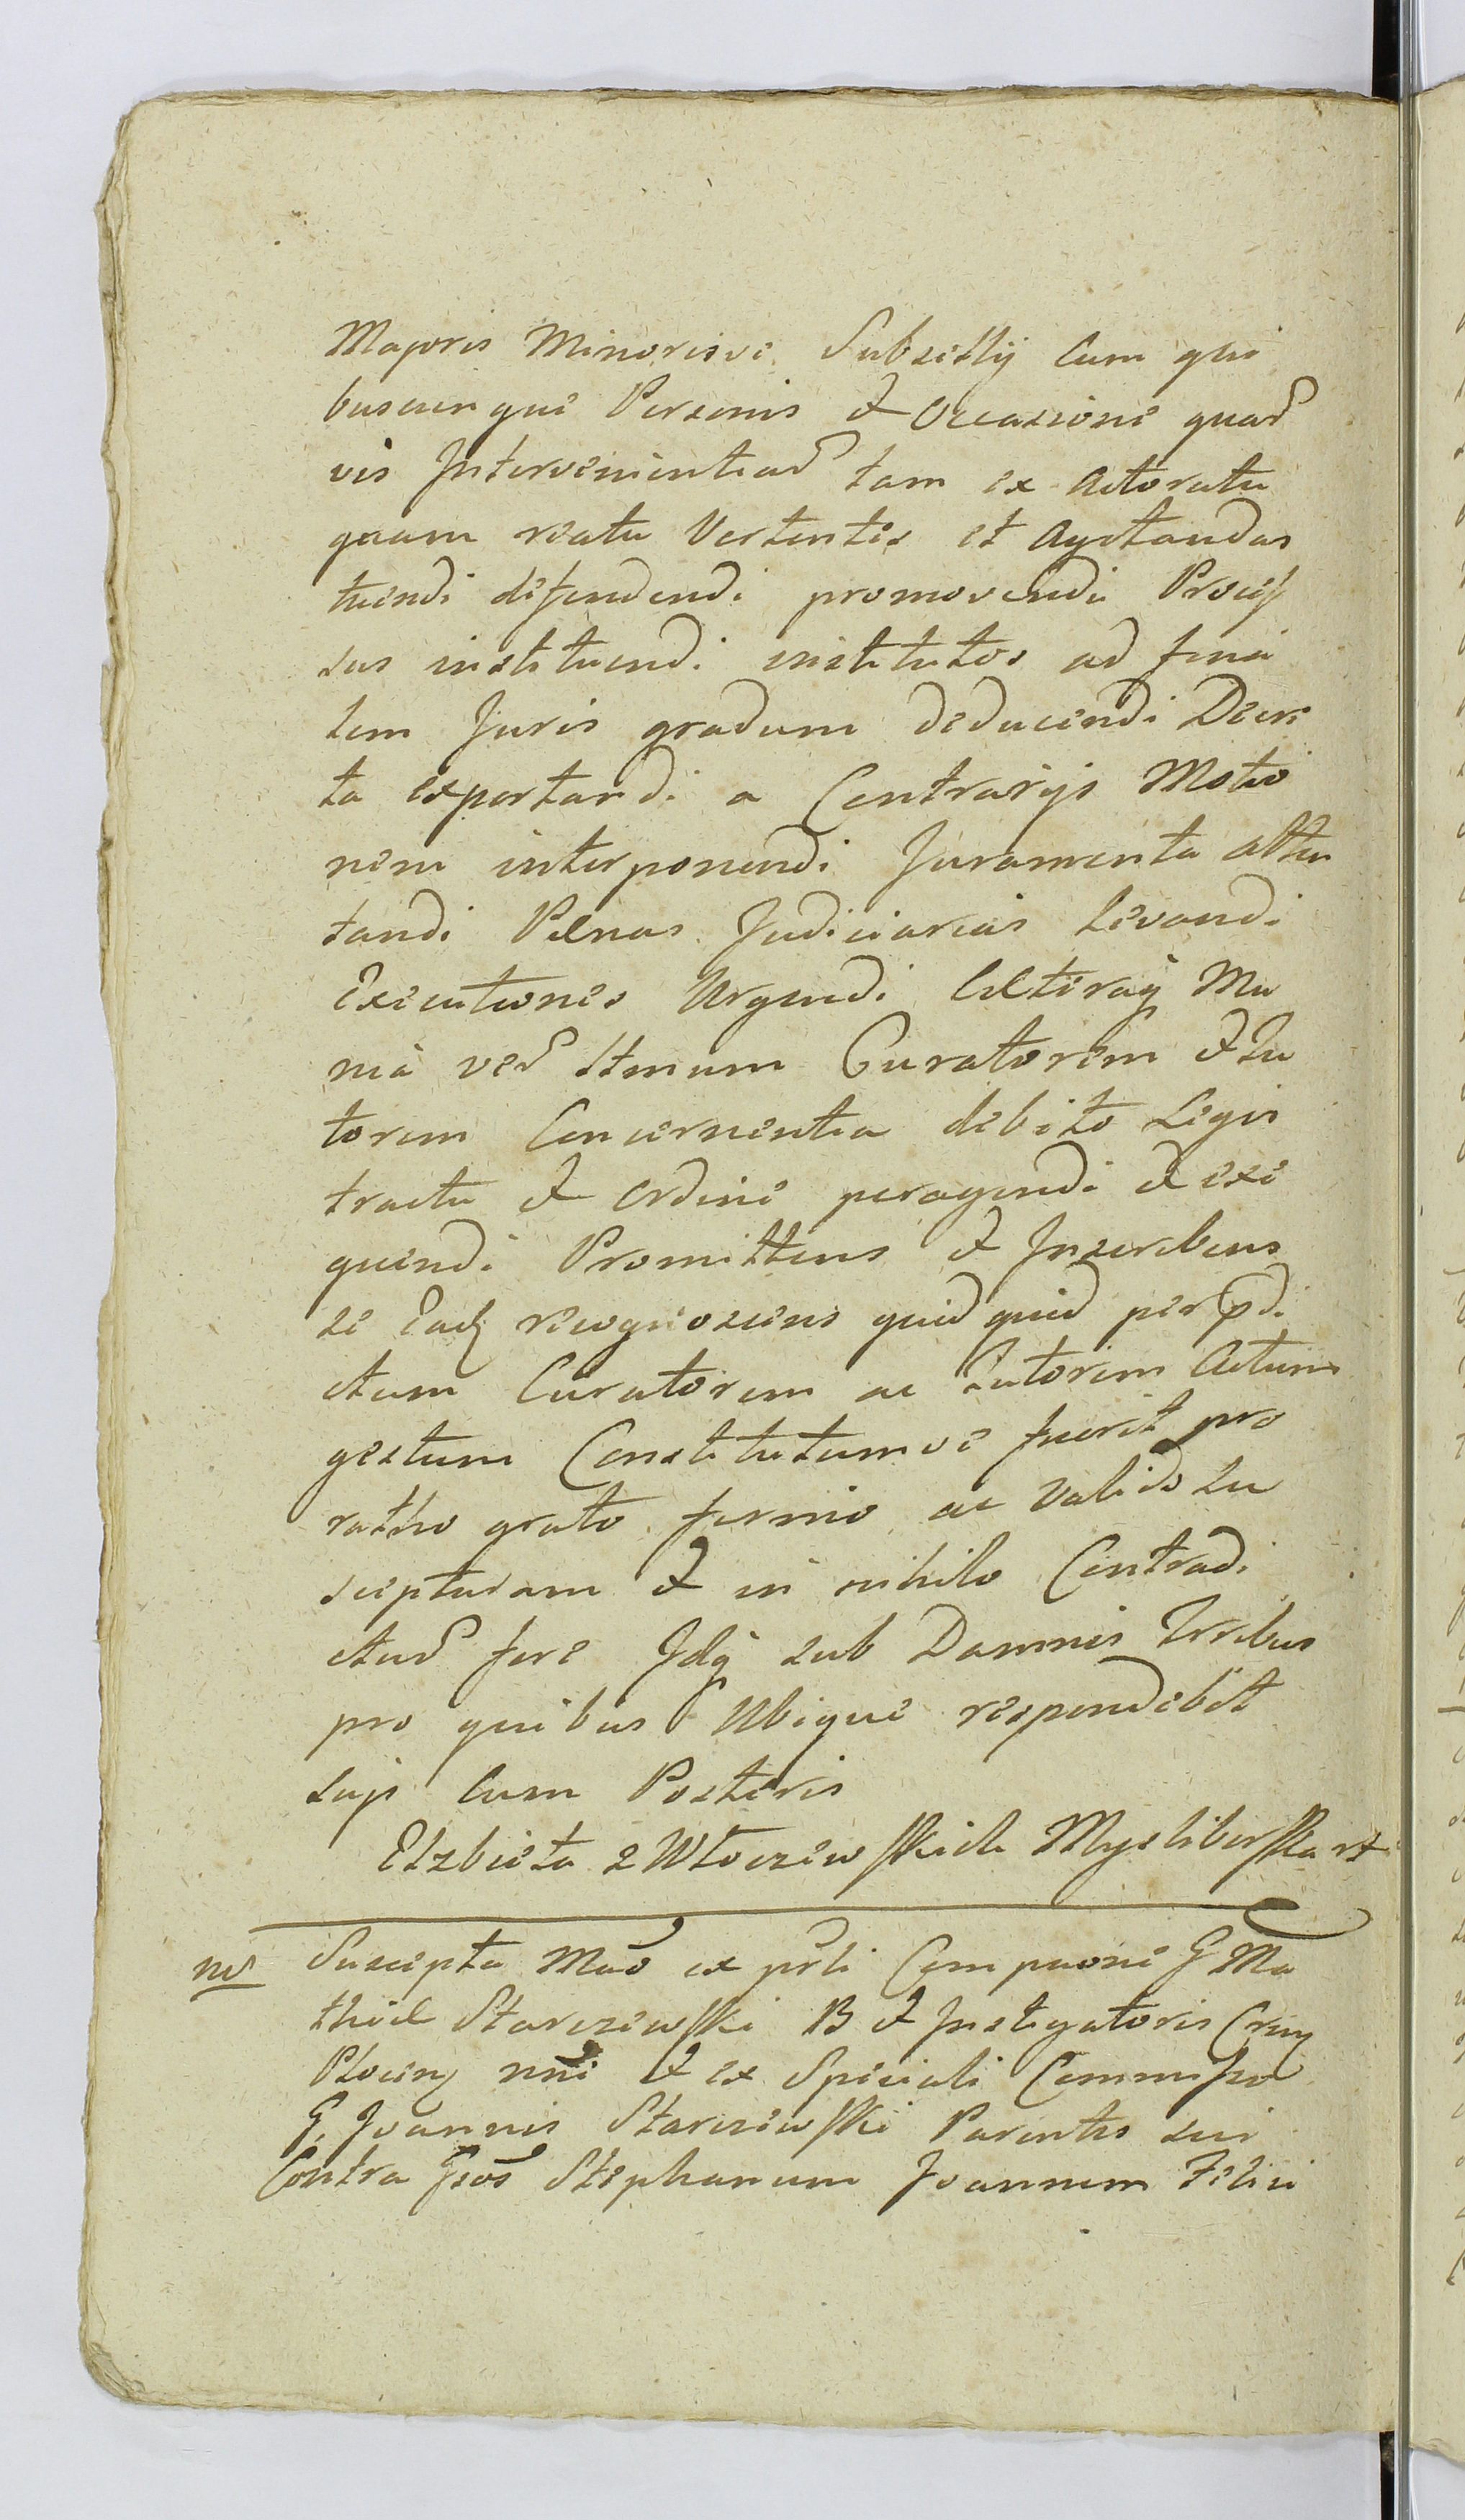 Majoris Minorisve Subsellij Cum qui
buscunque Personis et Occasione quad
vis Intervenientiad tam ex Actoratu
quam reatu Vertentes et Agitandas
tuendi defendendi promovendi Proces
sus instituendi institutos ad fina
lem Juris gradum deducendi Decre
ta exportandi a Contrarijs Motio
nem interponendi Juramenta atten
tandi Pænas Judiciarias Levandi
Executiones Urgendi Cæteraq Mu
nia ved Itmum Curatorem et Tu
torem Concernentia debito Legis
tractu et Ordine peragendi et exe
quendi Promittens et Inscribens
se Eadq recognoscens quidquid per pdi
ctum Curatorem ac Tutorem Actum
gestum Constitutumve fuerit pro
ratho grato firmo ac Valido su
scepturam et in nihilo Contradi
ctud fore Idq sub Damnis Trribus
pro quibus Ubique respondebit
suis Cum Posteris
Elzbieta z Włoczewskich Mysliborska
nd Suscepta Mao ex prli Compaone G Ma
thiæ Starczewski B et Instigatoris
Plocen nni et ex Speciali Commisso
G Joannis Starczewski Parentis sui
Contra Gsos Stephanum Joannem Felici